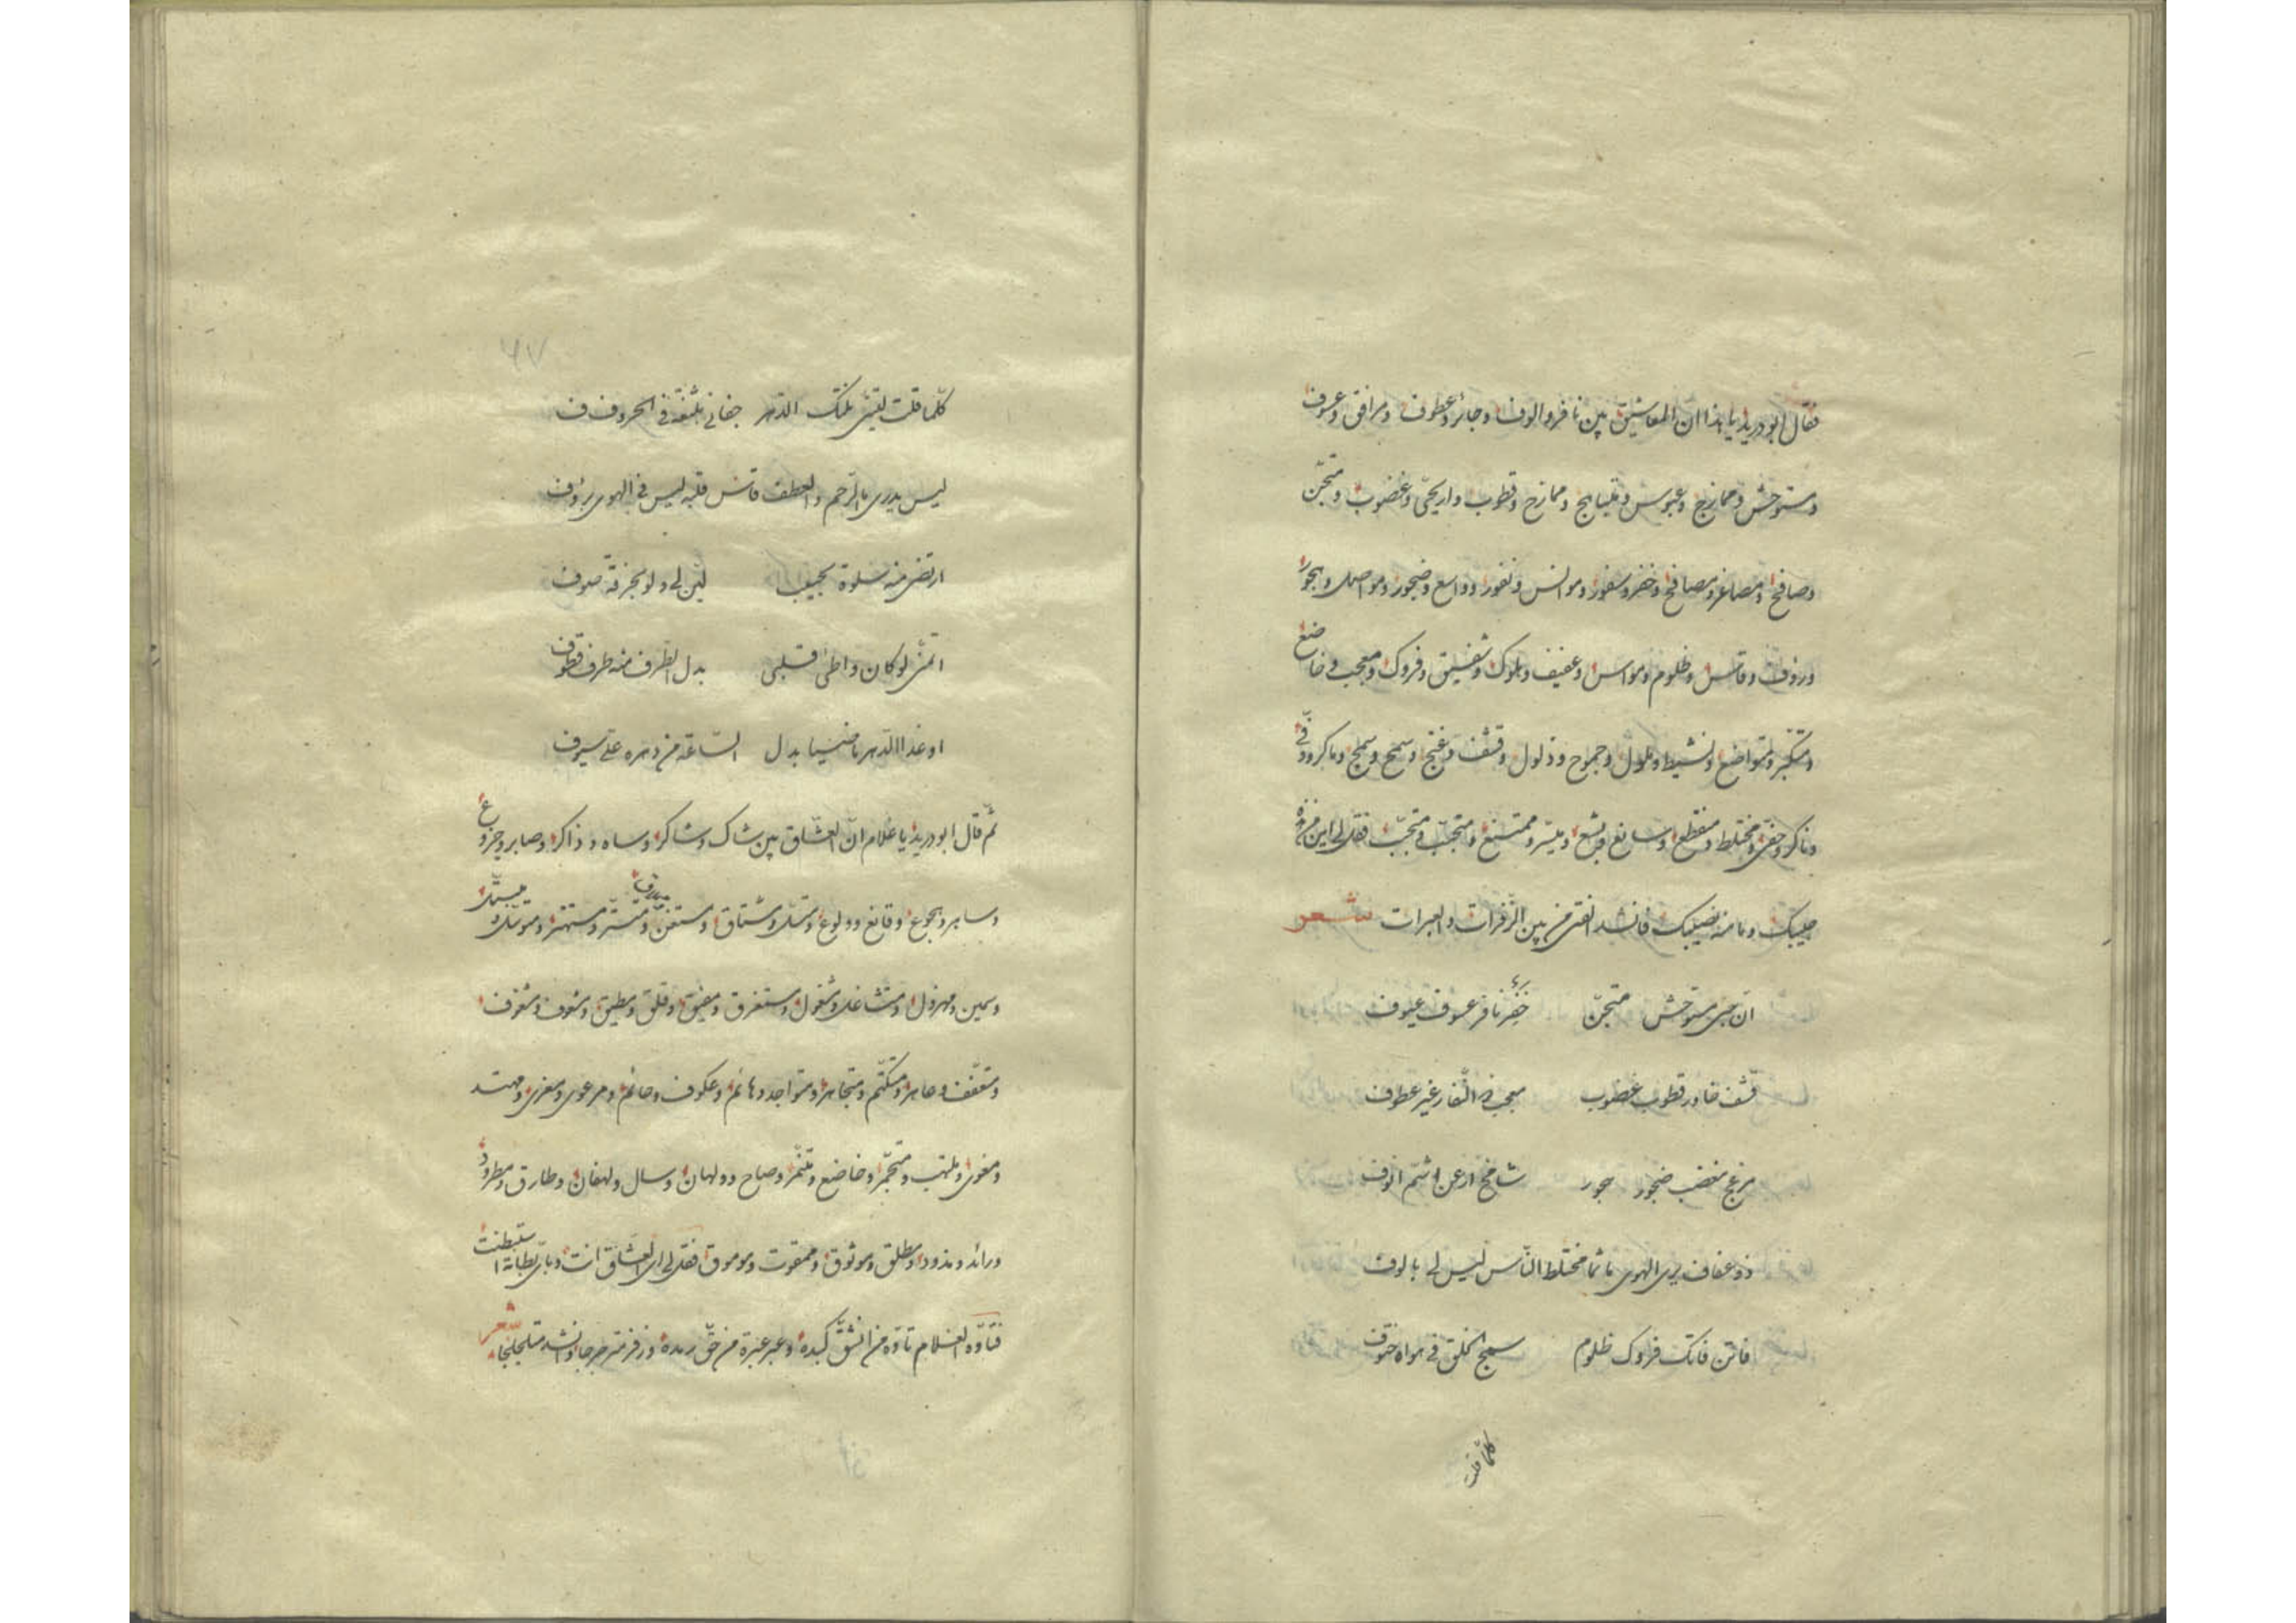 فقال ابو دريد يا هذا ان المعاشيق بين نافر والوف وجائر وعطوف ومرافق وعسوف
ومستوحش وممازج وعبوس ومازح وقطوب واريحي وغضوب ومتجن
وصافح ومصاعر ومصافح وخفر وسفور وموانس ونفور ووادع وضجور ومواصل وهجور
ورؤف وقاس وظلوم ومواس وعفيف وهلوك وشفيق وفروك ومعجب وخاضع
ومتكبر ومتواضع ونشيط وملول وجموح وذلول وقشف وغنج وسمح وسمج وماكر ووفي
وناكر وحفي ومختلط ومنقطع وسائغ وبشع وميسر وممتنع ومتجنب ومتحبب فقل لي اين من هذه
حبيبك وما منه نصيبك فانشد الفتى من بين الزفرات والعبرات شعر
ان حبي مستوحش متجن خفر نافر عسوف عيوف
قشف غادر قطوب غضوب معجب نفار غير عطوف
مزعج مغضب ضجور شامخ ارعن اشم انوف
ذو عفاف يرى الهوى مختلط الناس ليس لي بالوف
فاتن فاتك فروك ظلوم سمج الخلق في هواه حتوف
كلما قلت
٦٧
كلما قلت ليتني نلتك الدهر جفاني في الحروف
ليس يدري بالرحم والعطف قاس قلبه ليس في الهوى برؤف
ارتضي منه سلوة لحبيب لين لي ولو بجزة صوف
اتمنى لو كان واطئ قلبي بدل الطرف منه طرف قطوف
او غدا الدهر ماضيا بدل الساعة من دهره علي سيوف
ثم قال ابو دريد يا غلام ان العشاق بين شاك وشاكر وساه وذاكر وصابر وجزوع
وساهر وهجوع وقانع وولوع ومشتاق ومستفن ومتستر ومستهتر
وسمين ومهزول ومتشاغل ومشغول ومستغرق ومفيق وقلق ومطيق وشعوف ومشغوف
ومتعفف وعاهر ومتكتم ومتجاهر ومتواجد وهائم وعكوف وحائم ومرعوى ومغرى ومهتد
ومغوى وملتهب ومتجمر وخاضع ومتنمر وصاح وولهان وسال ولهفان وطارق ومطرود
ورائد ومذود ومطلق وموثوق وممقوت وموموق فقل لي اي العشاق انت وباي بطانة استبطنت
فتاوه الغلام تاوه من انشق كبده وعبر عبرة من وزفر متحرجا وانشد متلجلجا شعر